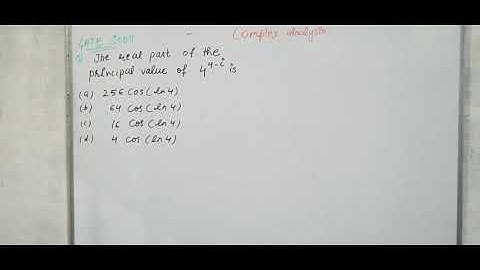 GATE 2009 - Complex Analysis
Q) The real part of the
principal value of 4^{4-i} is
(a) 256 cos(ln4)
(b) 64 cos(ln4)
(c) 16 cos(ln4)
(d) 4 cos(ln4)